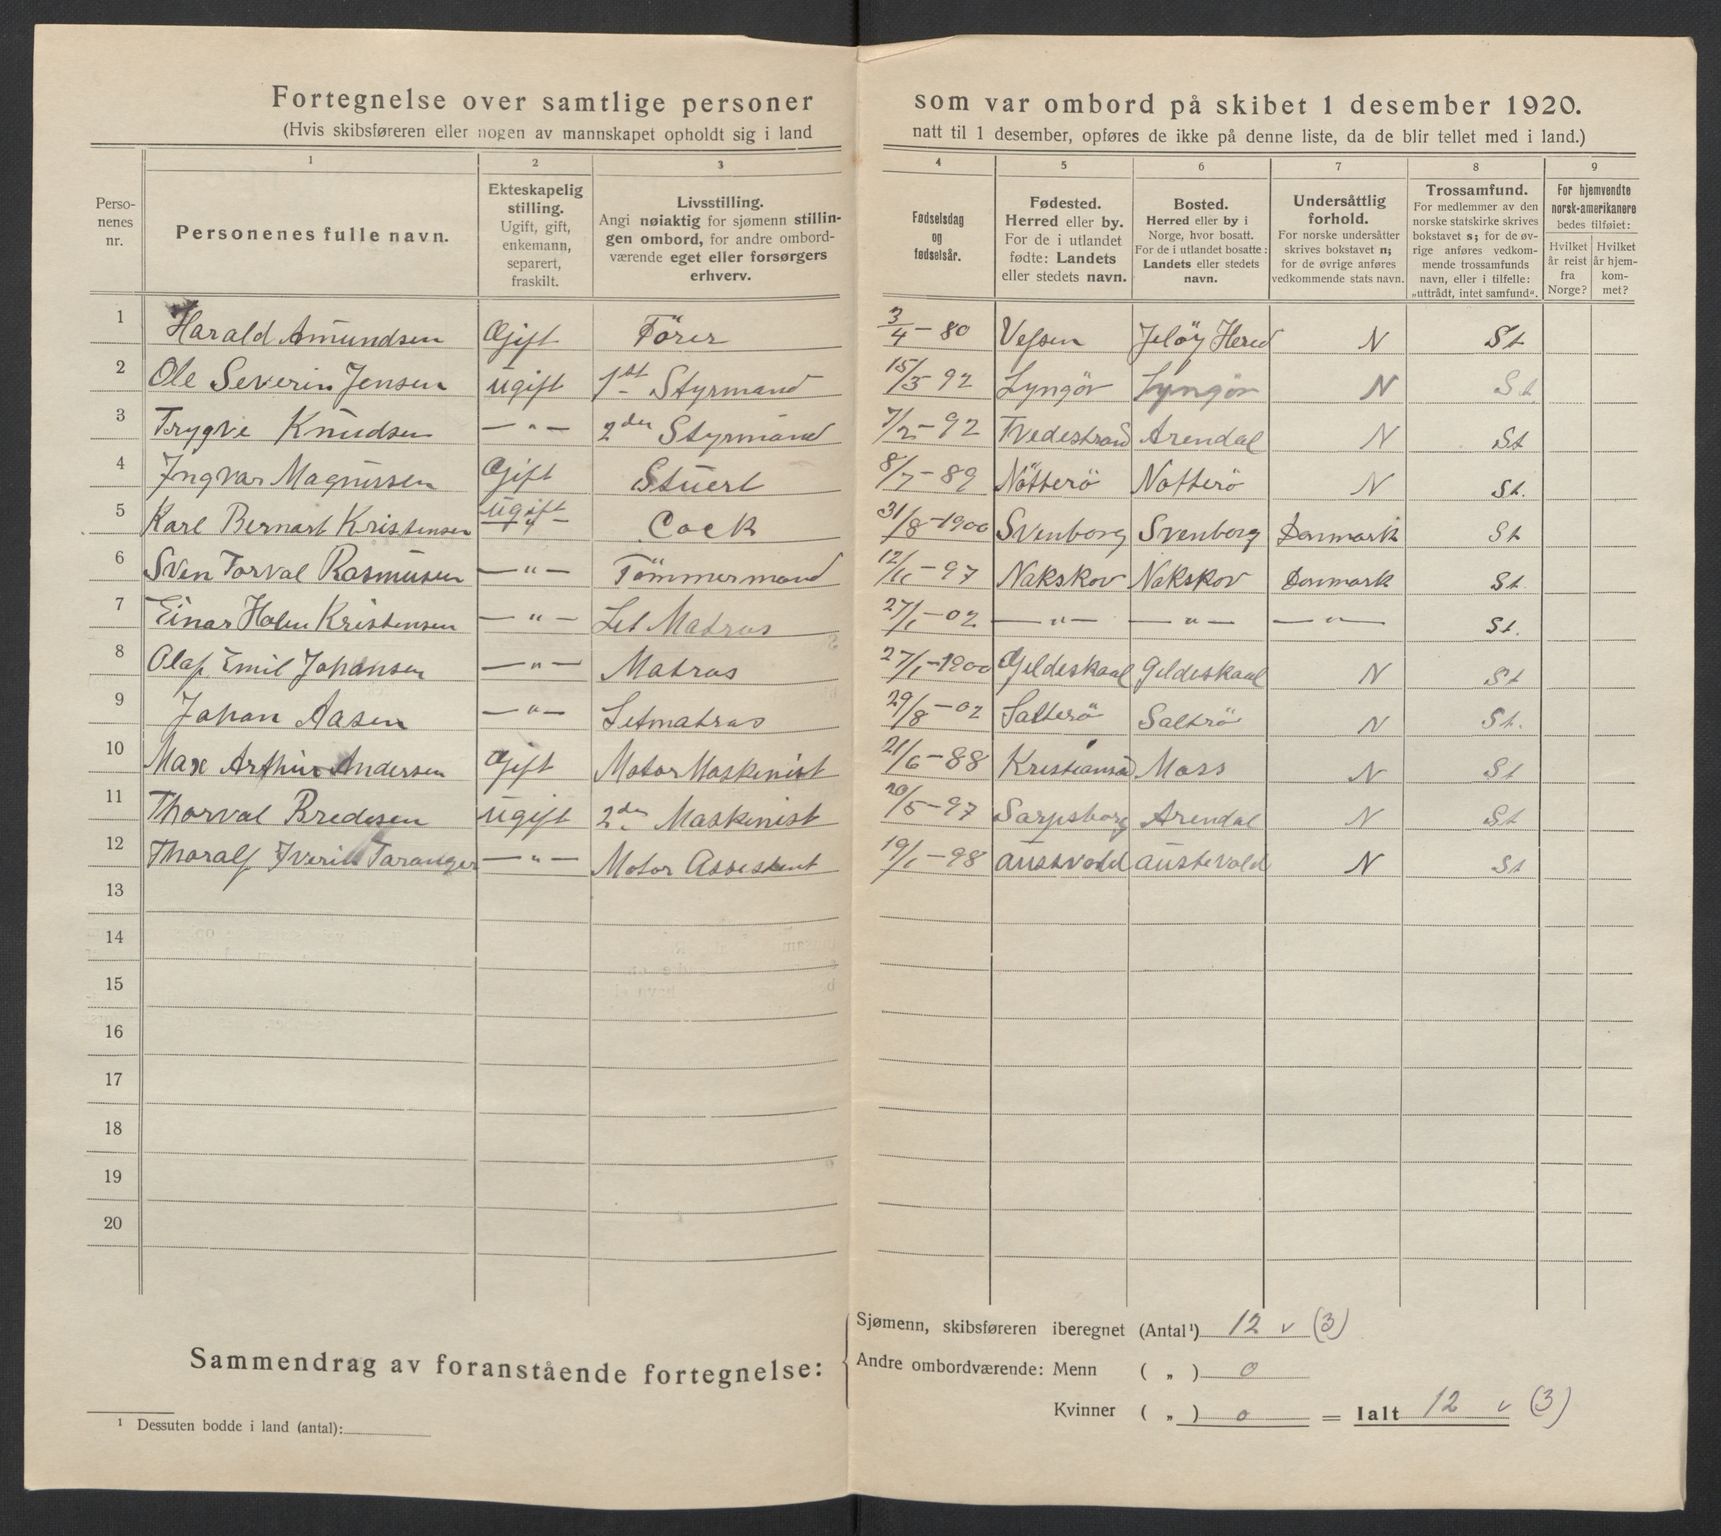 Fortegnelse over samtlige personer som var ombord på skibet 1 desember 1920.
(Hvis skibsføreren eller nogen av mannskapet opholdt sig i land natt til 1 desember, opføres de ikke på denne liste, da de blir tellet med i land.)
1 2 3 4 5 6 7 8 9
Perso-
nenes
nr.
Personenes fulle navn.
Ekteskapelig
stilling.
Ugift, gift,
enkemann,
separert,
fraskilt.
Livsstilling.
Angi nøiaktig for sjømenn stillin-
gen ombord, for andre ombord-
værende eget eller forsørgers
erhverv.
Fødselsdag
og
fødselsår.
Fødested.
Herred eller by.
For de i utlandet
fødte: Landets
eller stedets navn.
Bosted.
Herred eller by i
Norge, hvor bosatt.
For de i utlandet bosatte:
Landets eller stedets
navn.
Undersåttlig
forhold.
For norske undersåtter
skrives bokstavet n;
for de øvrige anføres
vedkommende stats navn.
Trossamfund.
For medlemmer av den
norske statskirke skrives
bokstavet s; for de øv-
rige anføres vedkom-
mende trossamfunds
navn, eller i tilfelle:
„uttrådt, intet samfund“.
For hjemvendte
norsk-amerikanere
bedes tilføiet:
Hvilket
år reist
fra
Norge?
Hvilket
år hjem-
kom-
met?
1 Harald Amundsen Gift Förer 3/4 - 80 Vefsen Jelöy Hered N St
2 Ole Severin Jensen Ugift 1st Styrmand 15/3 - 92 Lyngör Lyngör N St.
3 Trygve Knudsen — „ — 2den Styrmand 7/2 - 92 Tvedestrand Arendal N St
4 Ingvar Magnussen Gift Stuert 8/7 - 89 Nötterö Notterö N St.
5 Karl Bernart Kristensen Ugift — „ — Cock 31/8 - 1900 Svenborg Svenborg Danmark St
6 Sven Torval Rasmusen — „ — Tömmermand 12/11 - 97 Nakskov Nakskov Danmark St.
7 Einar Holm Kristensen — „ — Let Matros 27/1 - 02 — „ — — „ — — „ — St.
8 Olaf Emil Johansen — „ — Matros 27/1 - 1900 Gildeskaal Gildeskaal N St
9 Johan Aasen — „ — Letmatros 29/8 - 02 Salterö Saltrö N St.
10 Max Arthur Andersen Gift Motor Maskinist 21/6 - 88 Kristiansd Moss N St
11 Thorval Bredesen Ugift 2den Maskinist 20/5 - 97 Sarpsborg Arendal N St
12 Thoralf Iverin Taranger — „ — Motor Assistent 19/1 - 98 Austvold Austevold N St
13
14
15
16
17
18
19
20
Sammendrag av foranstående fortegnelse:
Sjømenn, skibsføreren iberegnet (Antal¹) 12 v (3)
Andre ombordværende: Menn ( „ ) 0
Kvinner ( „ ) 0 = Ialt 12 v (3)
¹ Dessuten bodde i land (antal):